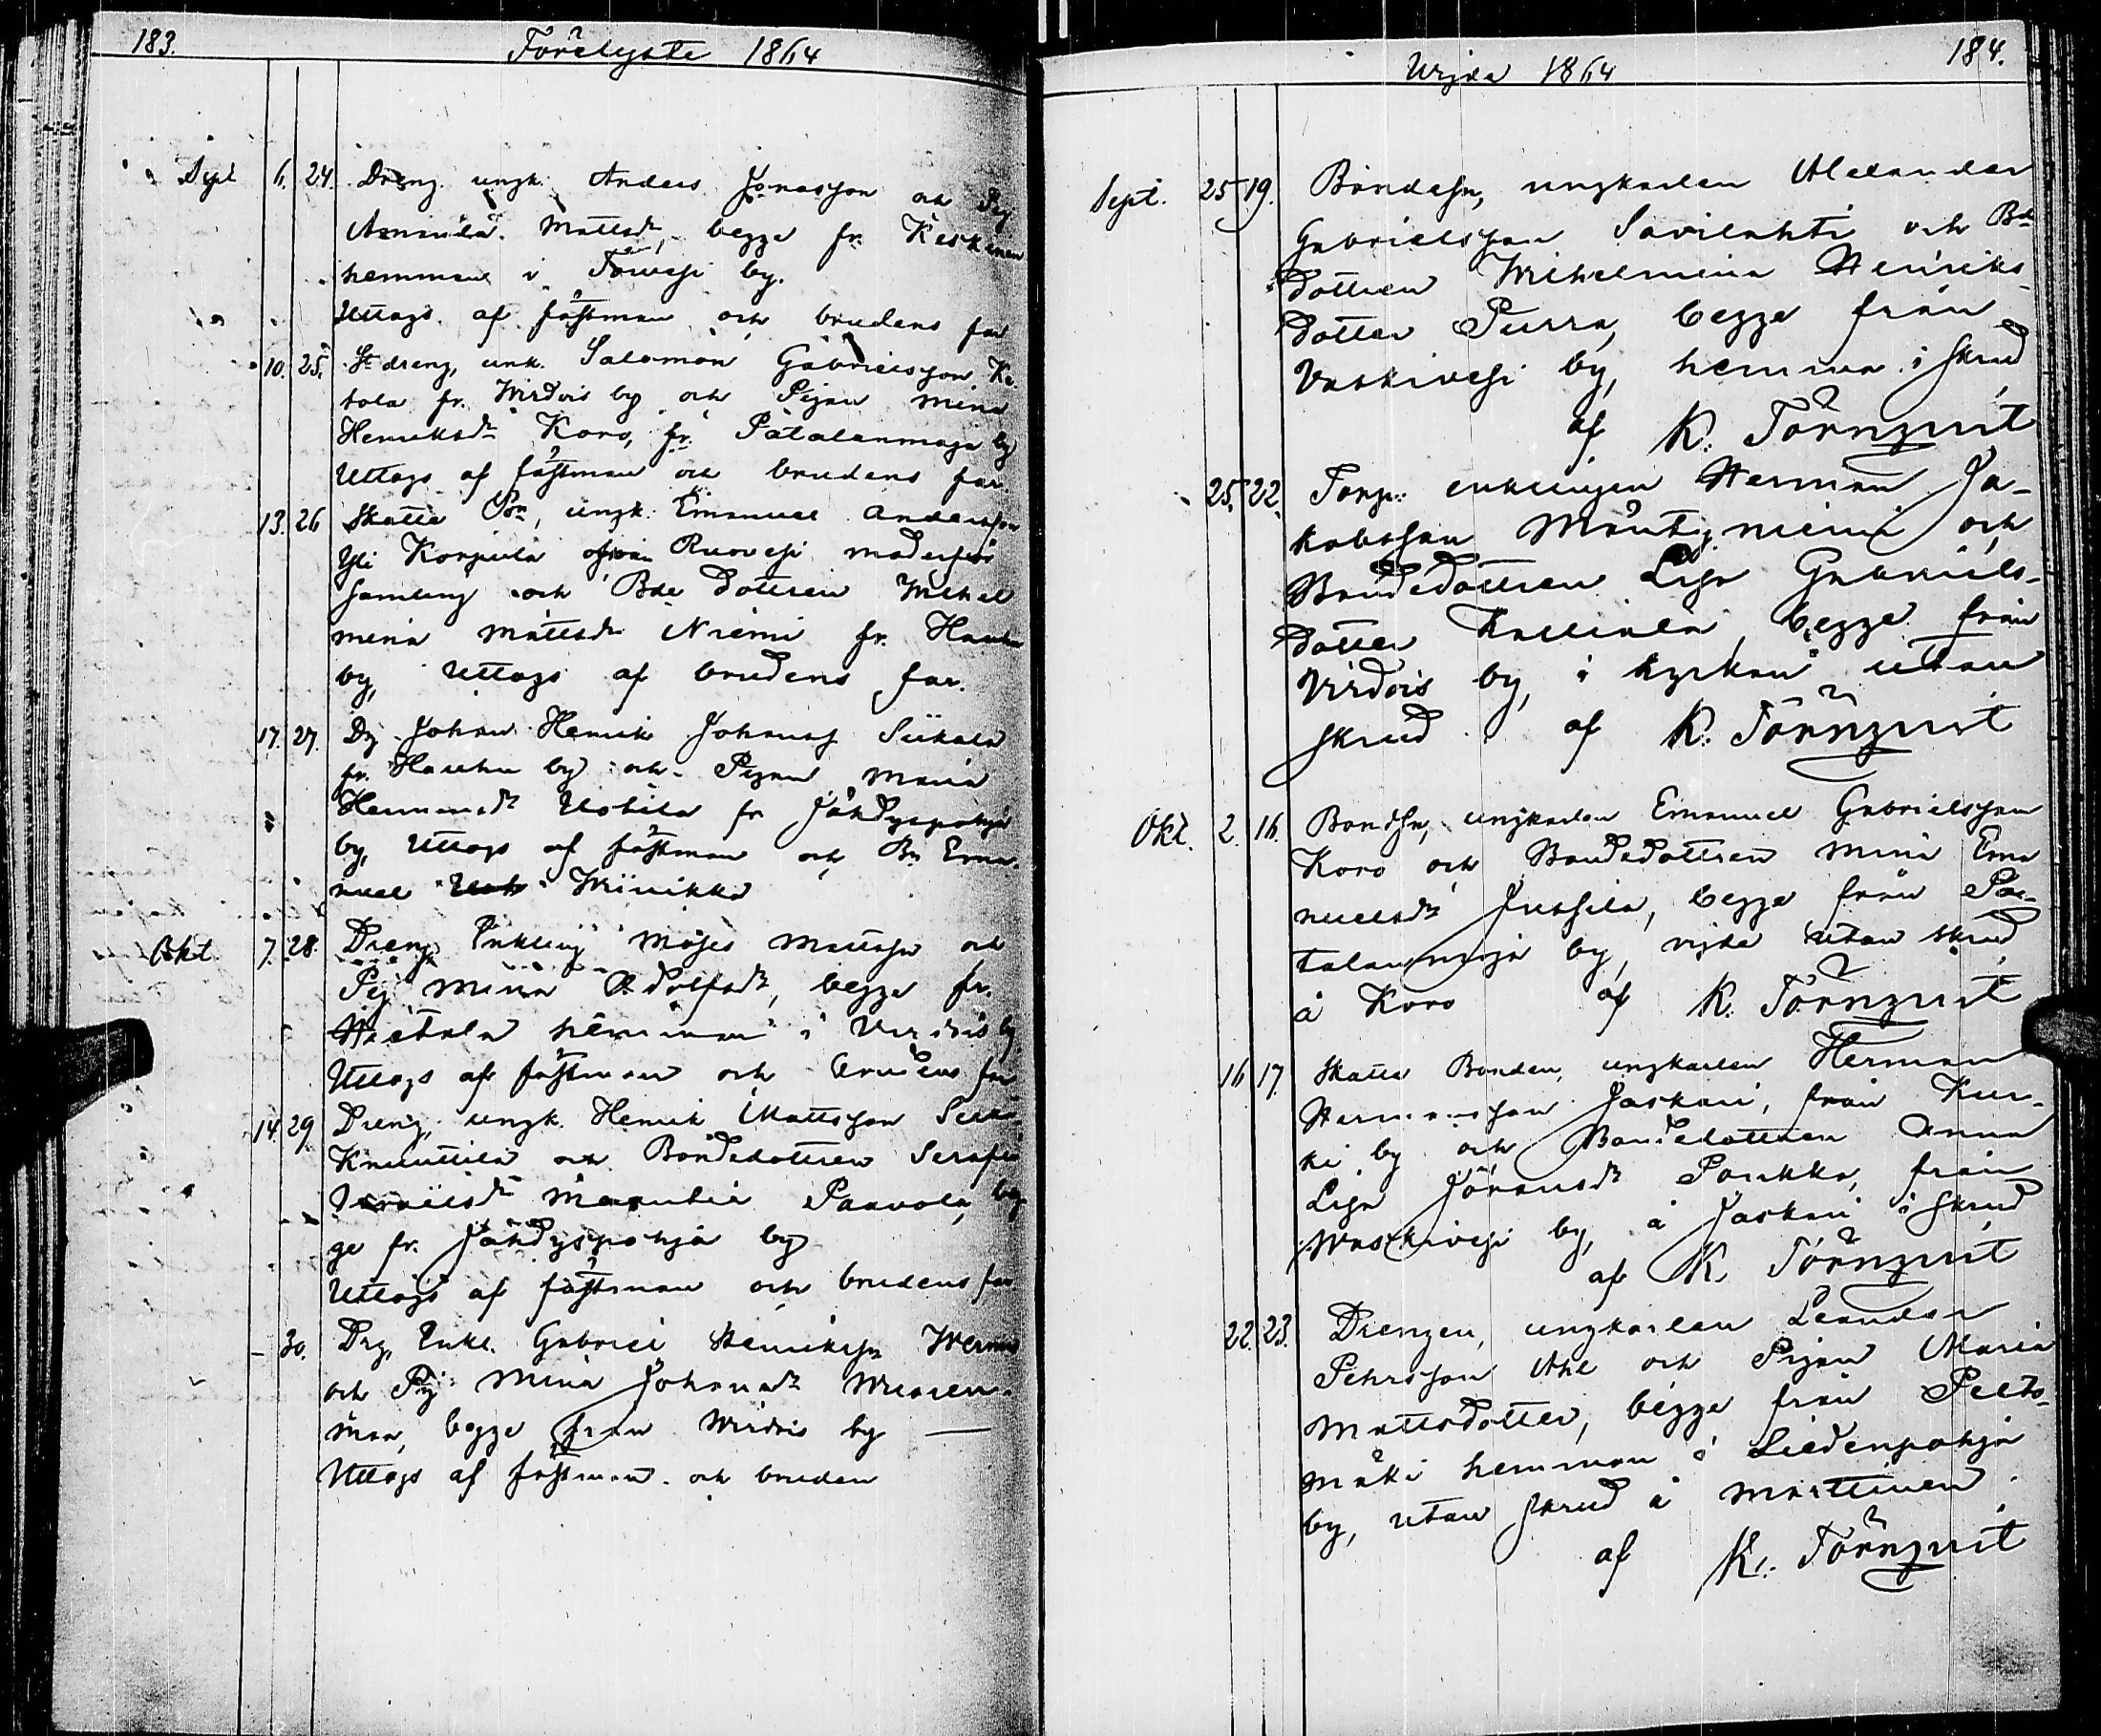 183.
Förelyste 1864
Sept 6. 24. Dreng. ungk. Anders Jonasson och Pig
Amanda Mattsdr begge fr. Keskinen
hemman i Toivesi by.
Uttogs af fästman och brudens far
10. 25. St dreng, unk. Salomon Gabrielsson Ke
tola fr. Wirdois by och Pigan Mina
Henriksdr Koro, fr. Patalanmaja by
Uttogs af fästman och brudens far.
13. 26 Skatte Bsn, ungk. Emanuel Andersson
Yli Korpula från Ruovesi moderförs
samling och Bde dottren Wilhel
mina Mattsdr Niemi fr. Hauhu
by, Uttogs af brudens far.
17. 27. Dg Johan Henrik Johanss Siikala
fr. Hauhu by och Pigan Maria
Hermansdr Uotila fr Jähdyspohja
by, Uttogs af fästman och Bn Ema
nuel Wiinikka
Okt. 7. 28. Dreng Enkling Moses Mattssn och
Pig Mina Adolfsdr, begge fr.
Hietala hemman i Virdois by
Uttogs af fästman och brudens far
14. 29 Dreng, ungk. Henrik Mattsson
Knuuttila och Bondedottren Serafia
Israelsdr Paavola, beg
ge fr. Jähdyspohja by
Uttogs af fästman och brudens far
– 30. Drg, Enkl. Gabriel Henrikssn
och Pig Mina Johansdr Wuoren
maa, begge från Wirdois by —
Uttogs af fästman och bruden
184.
Wigda 1864
Sept. 25 19. Bondesn, ungkarlen Alexander
Gabrielsson Savilahti och Bde
dottren Wilhelmina Henriks
dotter Purra, begge från
Vaskivesi by, hemma i skrud
af K. Törnqvist
25. 22. Torp. enklingen Herman Ja-
kobsson Mäntyniemi och
Bondedottren Lisa Gabriels-
dotter Kalliala, begge från
Virdois by, i kyrkan utan
skrud af K. Törnqvist
Okt. 2. 16. Bondsn, ungkarlen Emanuel Gabrielsson
Koro och Bondedottren Mina Ema
nuelsdr Jussila, begge från Pa-
talanmaja by, vigde utan skrud
å Koro af K. Törnqvist
16 17. Skatte Bonden, ungkarlen Herman
Hermansson Jaskari, från Kur-
ki by och Bondedottren Anna
Lisa Göransdr Poukka, från
Waskivesi by, å Jaskari i skrud
af K. Törnqvist
22. 23. Drengen, ungkarlen Leander
Pehrsson Ahl och Pigan Maria
Mattsdotter, begge från Pelto-
mäki hemman i Liedenpohja
by, utan skrud å Marttinen.
af K. Törnqvist